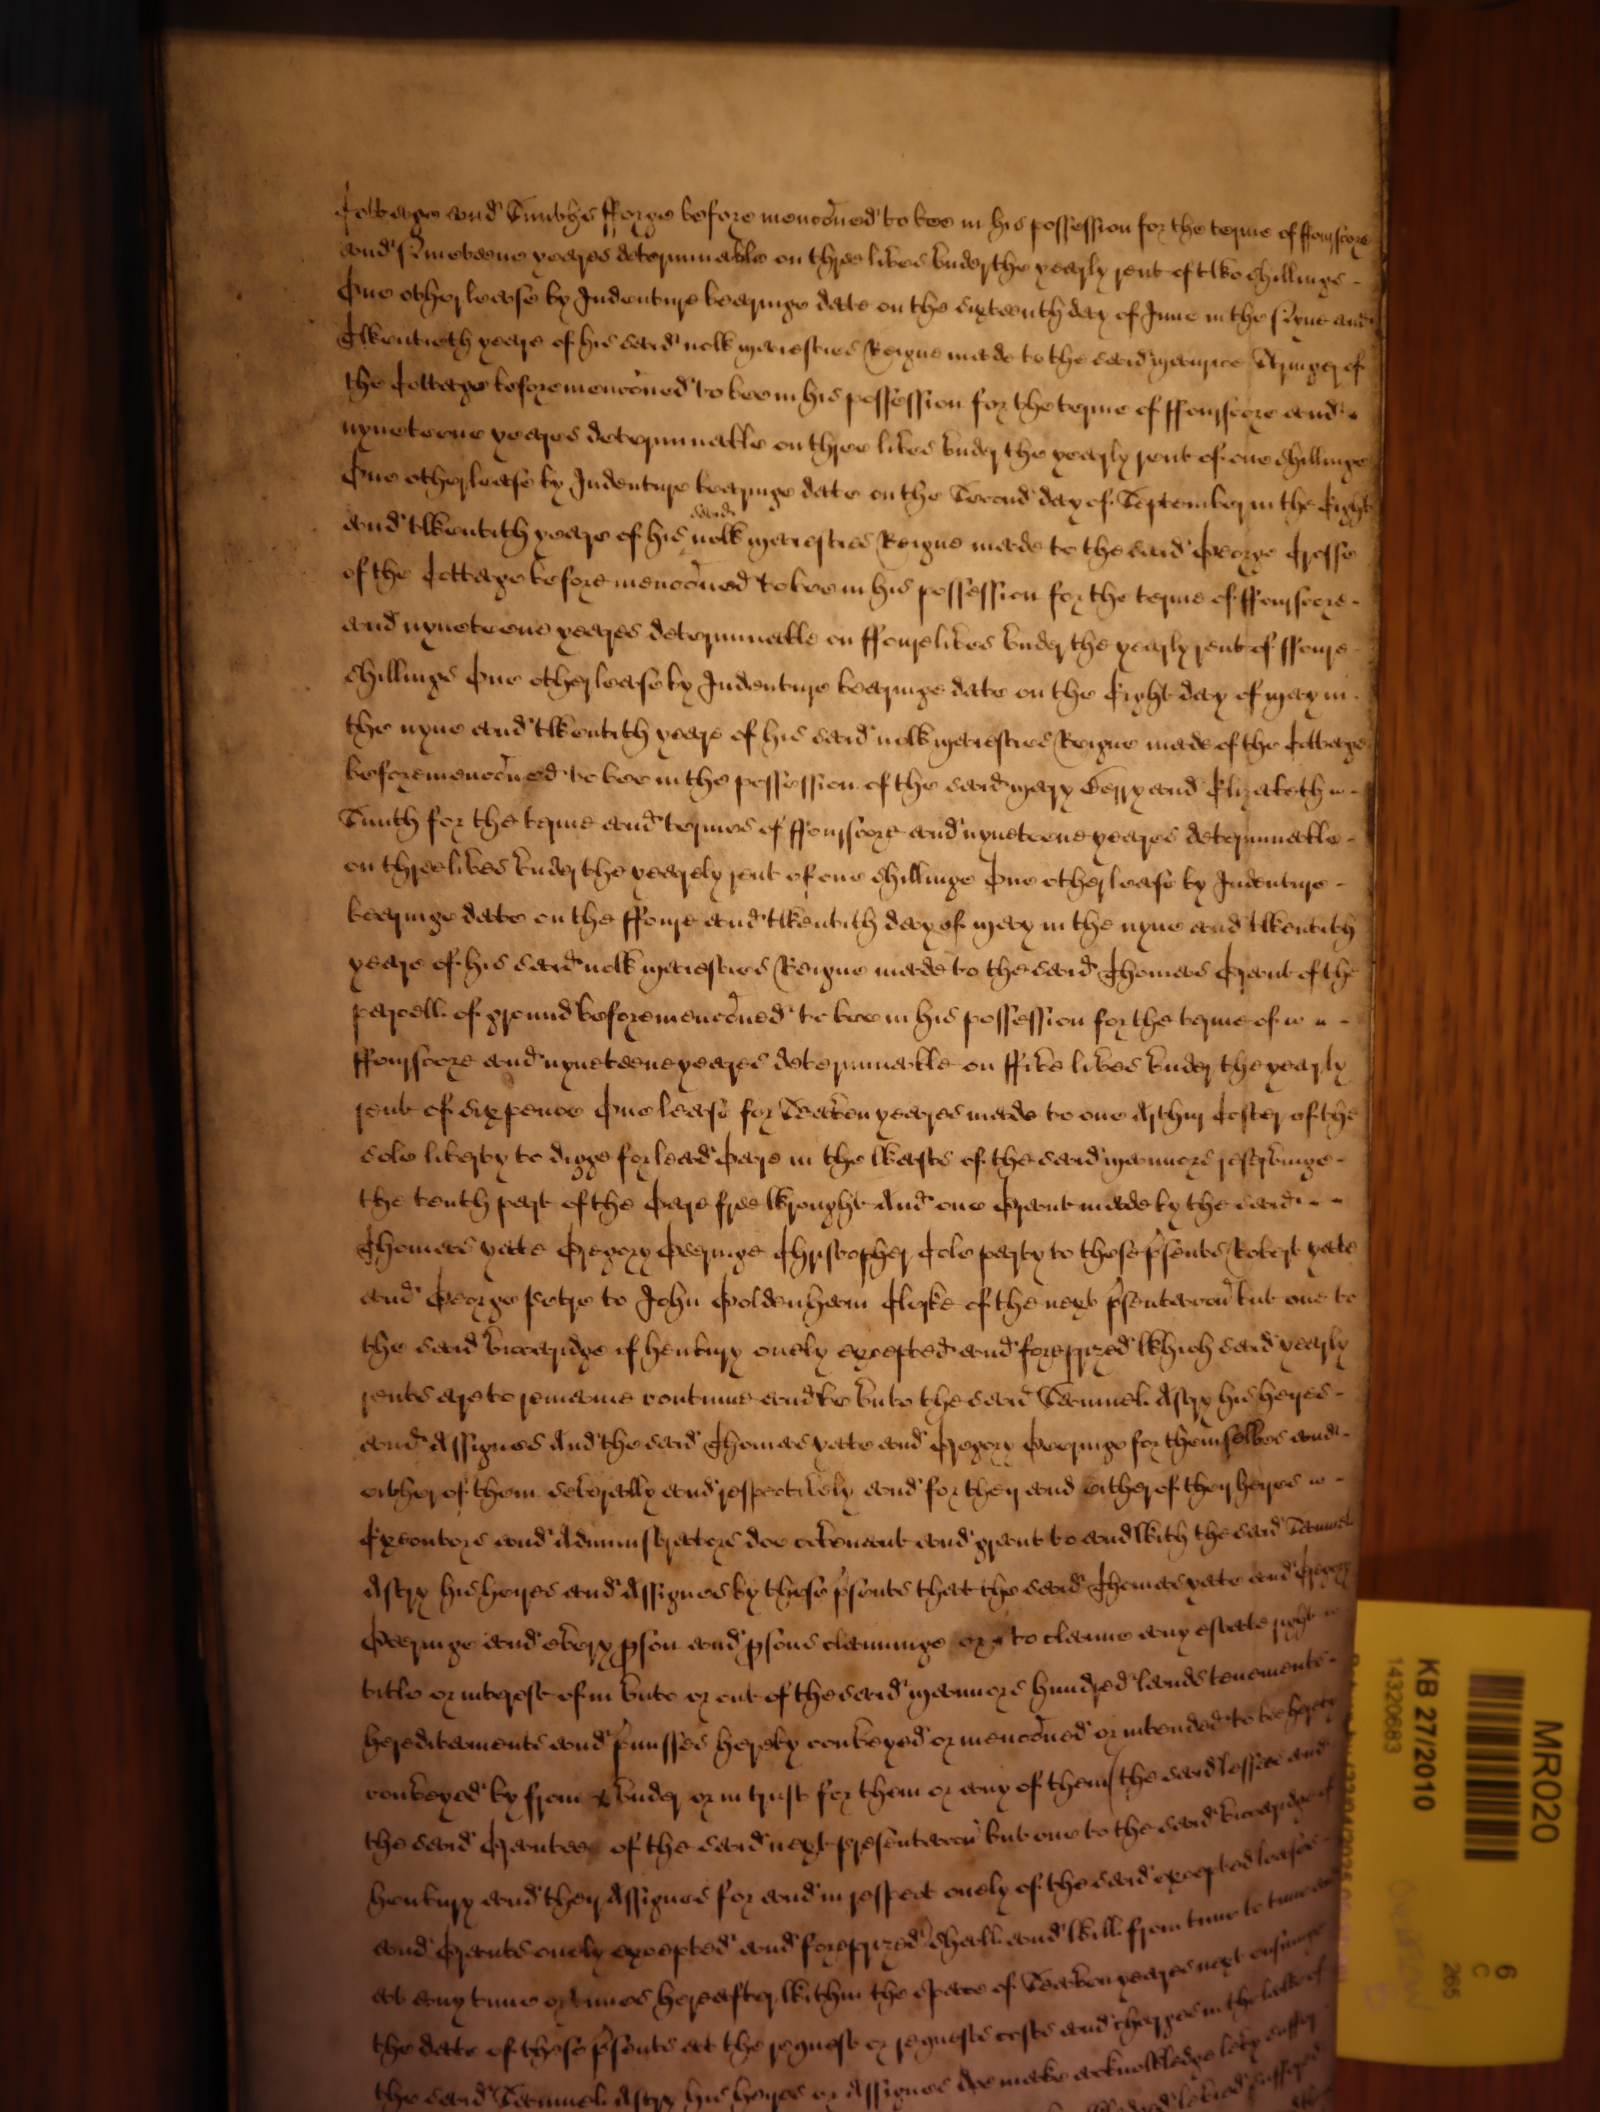 Cottage and Smithes fforge before menconed to bee in his possession for the terme of ffourscore
and Nineteene yeares determinable on three lives under the yearly rent of two shillings -
One other lease by Indenture bearinge date on the sixteenth day of June in the Nyne and
Twentieth yeare of his said now majesties Reigne made to the said Maurice of
the Cottage before menconed to bee in his possession for the terme of ffourscore and
nyneteene yeares determinable on three lives under the yearly rent of one shillinge
One other lease by Indenture bearinge date on the Second day of September in the Eight
and twentith yeare of his said now majesties Reigne made to the said George Crosse
of the Cottage before menconed to bee in his possession for the terme of ffourscore -
and nyneteene yeares determinable on ffoure lives under the yearly rent of ffoure -
shillings One other lease by Indenture bearinge date on the Eight day of May in -
the nyne and twentith yeare of his said now majesties Reigne made of the Cottage
before menconed to bee in the possession of the said Mary and Elizabeth -
Smith for the terme and termes of ffourscore and nyneteene yeares determinable -
on three lives under the yearely rent of one shillinge One other lease by Indenture -
bearinge date on the ffoure and twentith day of May in the nyne and twentith
yeare of his said now majesties Reigne made to the said Thomas Grant of the
parcell of ground before menconed to bee in his possession for the terme of -
ffourscore and nyneteene yeares determinable on ffive lives under the yearly
rent of sixpence One lease for Seaven yeares made to one Arthur Coster of the
sole liberty to digge for lead Oare in the Wasts of the said Mannors reserveinge -
the tenth part of the Oare free wrought And one Grant made by the said -
Thomas Yate Gregory Gearinge Christopher Cole party to these psents Robert Yate
and George Petre to John Goldenham Clerke of the next psentacon but one to
the said vicaridge of Henbury onely excepted and foreprized Which said yearly
rents are to remaine continue and be unto the said Samuel Astry his heires -
and Assignes And the said Thomas Yate and Gregory Gearinge for themselves and -
either of them severally and respectively and for their and either of their heires -
Executors and Administrators doe covenant and grant to and with the said Samuel
Astry his heires and Assignes by these psents that the said Thomas Yate and Gregory
Gearinge and every pson and psons claiminge or to claime any estate right
title or interest of in unto or out of the said Mannors hundred lands tenements -
hereditaments and pmisses hereby conveyed or menconed or intended to bee hereby
conveyed by from or under or in trust for them or any of them (the said lessees and
the said Grantee of the said next presentacon but one to the said vicaridge of
Henbury and their Assignes for and in respect onely of the said excepted leases
and Grants onely excepted and foreprized) shall and will from time to time and
at any time or times hereafter within the space of Seaven yeares next ensuinge
the date of these psents at the request or requests costs and charges in the lawe of
the said Samuel Astry his heires or Assignes doe make acknowledge levy suffer
MR020
6
C
265
KB 27/2010
14320683